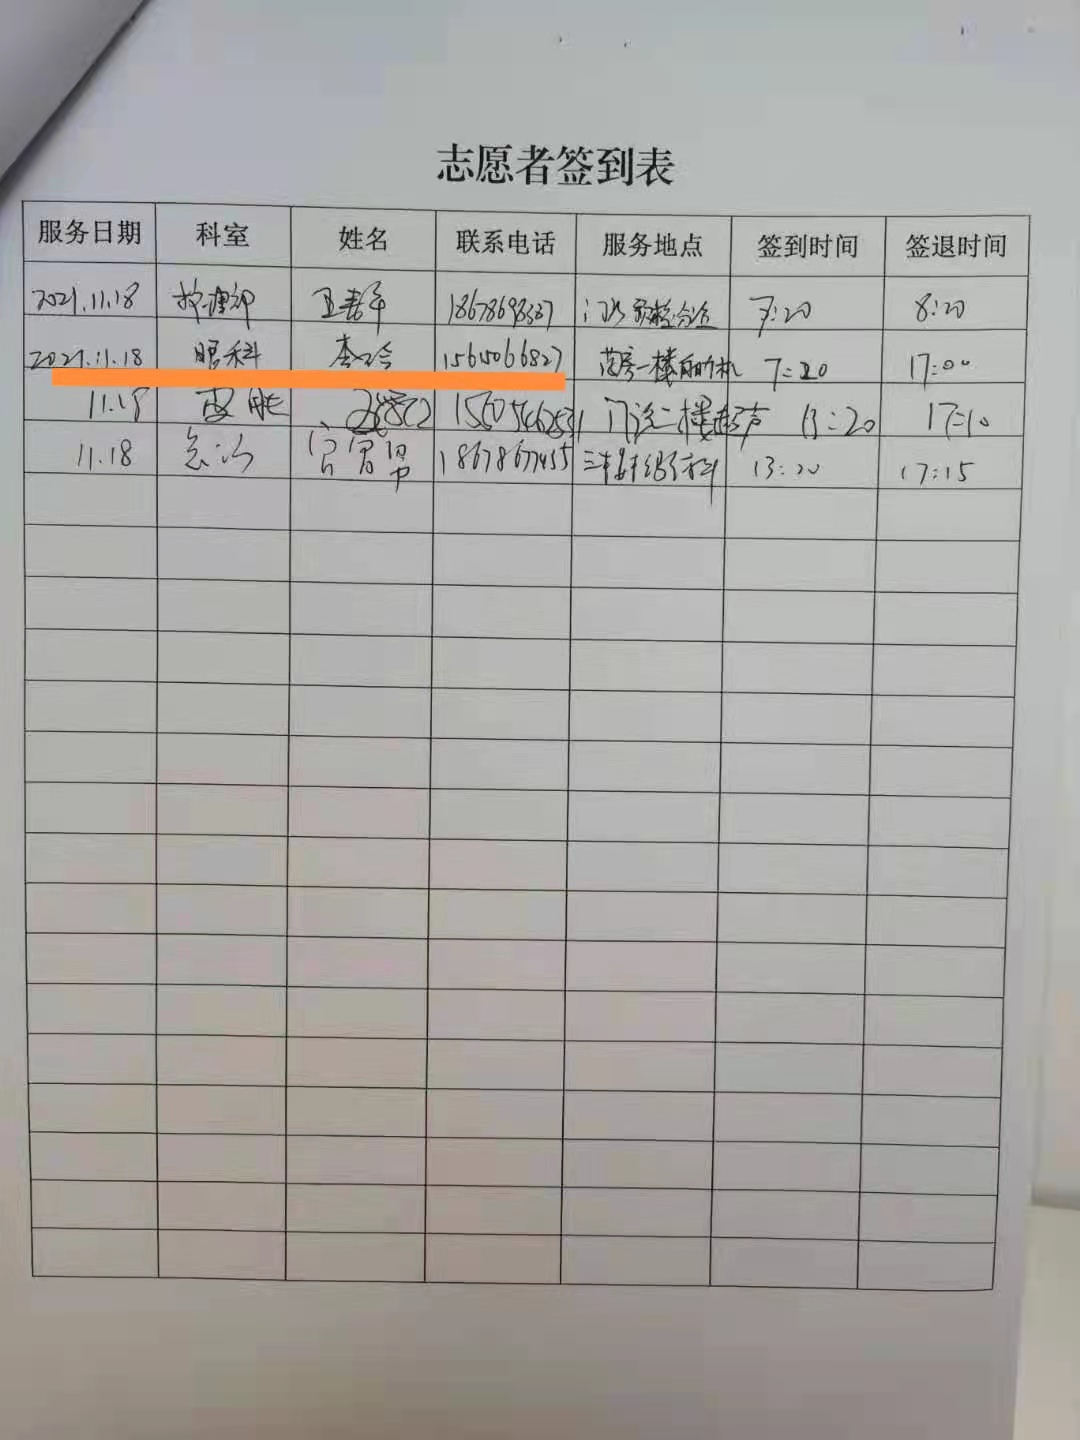 志愿者签到表
服务日期 科室 姓名 联系电话 服务地点 签到时间 签退时间
2021.11.18 护理部 18678698327 7:20 8:20
2021.11.18 眼科 15615066827 一楼 7:20 17:00
11.18 门诊二楼超声 13:20 17:10
11.18 急诊 18678677455 13:20 17:15